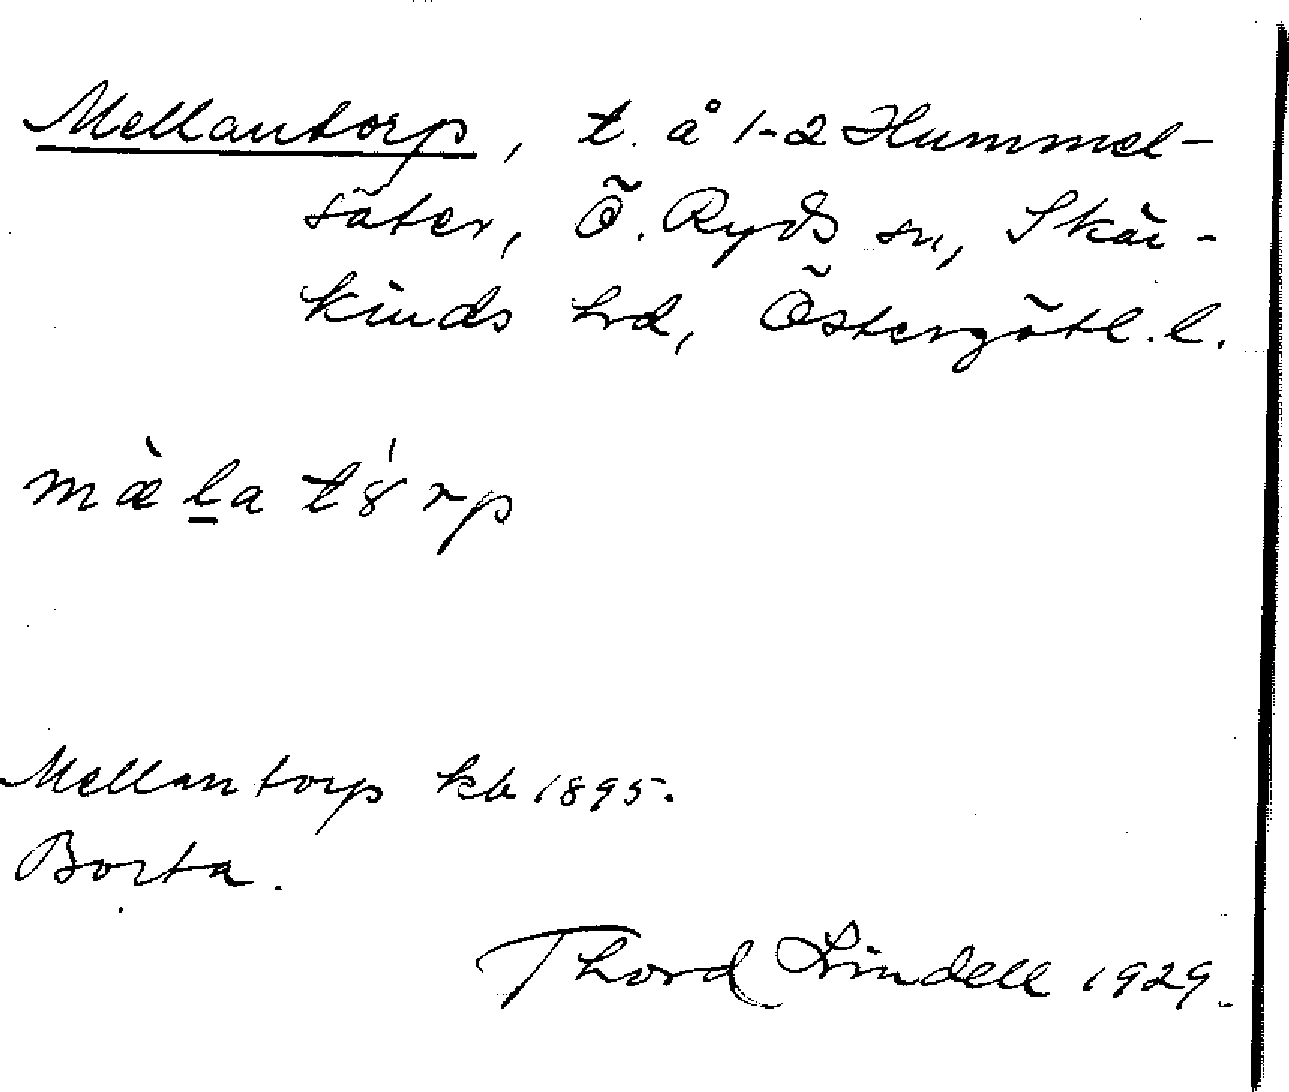 Mellantorp, t. å 1-2 Hummel-
säter, Ö. Ryds sn, Skär-
kinds hrd, Östergötl. l.
mæ̀l̲a tȣ́rp
Mellantorp kb 1895.
Borta.
Thord Lindell 1929.